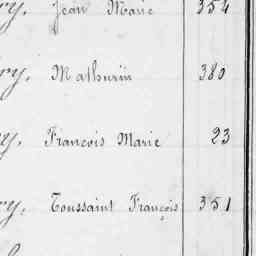 ry, Jean Marie 354
ry, Mathurin 380
y, François Marie 23
ry, Toussaint François 351